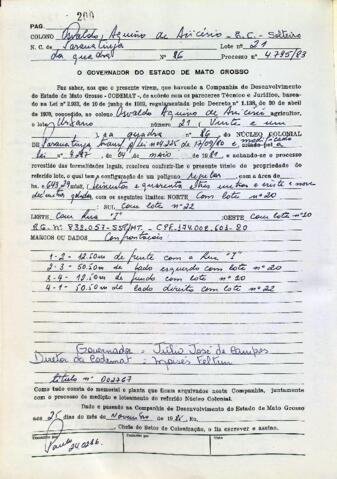 PAG. 200
COLONO Osvaldo Aquino de Anicésio - B.C. - Solteiro
N. C. de Paranatinga Lote nº 21
da quadra nº 26 Processo nº 4.795/83
O GOVERNADOR DO ESTADO DE MATO GROSSO
Faz saber, aos que o presente virem, que havendo a Companhia de Desenvolvimento
do Estado de Mato Grosso - CODEMAT-, de acordo com os pareceres Técnico e Jurídico, basea-
do na Lei nº 2.903, de 10 de junho de 1969, regulamentada pelo Decreto nº 1.138, de 30 de abril
de 1970, concedido ao colono Osvaldo Aquino de Anicésio, agricultor,
o lote Urbano número 21 (Vinte e um
) da quadra nº 26 do NÚCLEO COLONIAL
de Paranatinga criado pela
Lei nº de 04 de maio de 1981, e achando-se o processo revestido
das formalidades legais, resolveu conferir-lhe o presente título de propriedade
do referido lote, o qual tem a configuração de um polígono regular com a área de
hs. 643,29 m2, seiscentos e quarenta e três metros e vinte e nove
decímetros quadrados com os seguintes limites: NORTE com lote nº 20
SUL com lote nº 22
LESTE com Rua "I" OESTE com lote nº 20
R.G. nº 832.057-SSP/MT. - CPF. 174.002.603-20
MARCOS OU DADOS Confrontações
1-2- 12.50m de frente com a Rua "I"
2-3- 50.50m de lado esquerdo com lote nº 20
3-4- 12.50m de fundo com lote nº 20
4-1- 50.50m de lado direito com lote nº 22
Governador: Júlio José de Campos
Diretor da Codemat: Moisés Feltrin
título nº 002767
Como tudo consta do memorial e planta que ficam arquivados nesta Companhia, juntamente
com o processo de medição e loteamento do referido Núcleo Colonial.
Dado e passado na Companhia de Desenvolvimento do Estado de Mato Grosso
aos 25 dias do mês de Novembro de 1985.
Chefe do Setor de Colonização, o fiz escrever e assino.
Escriturado por
Conferido por
Paulo
240286.